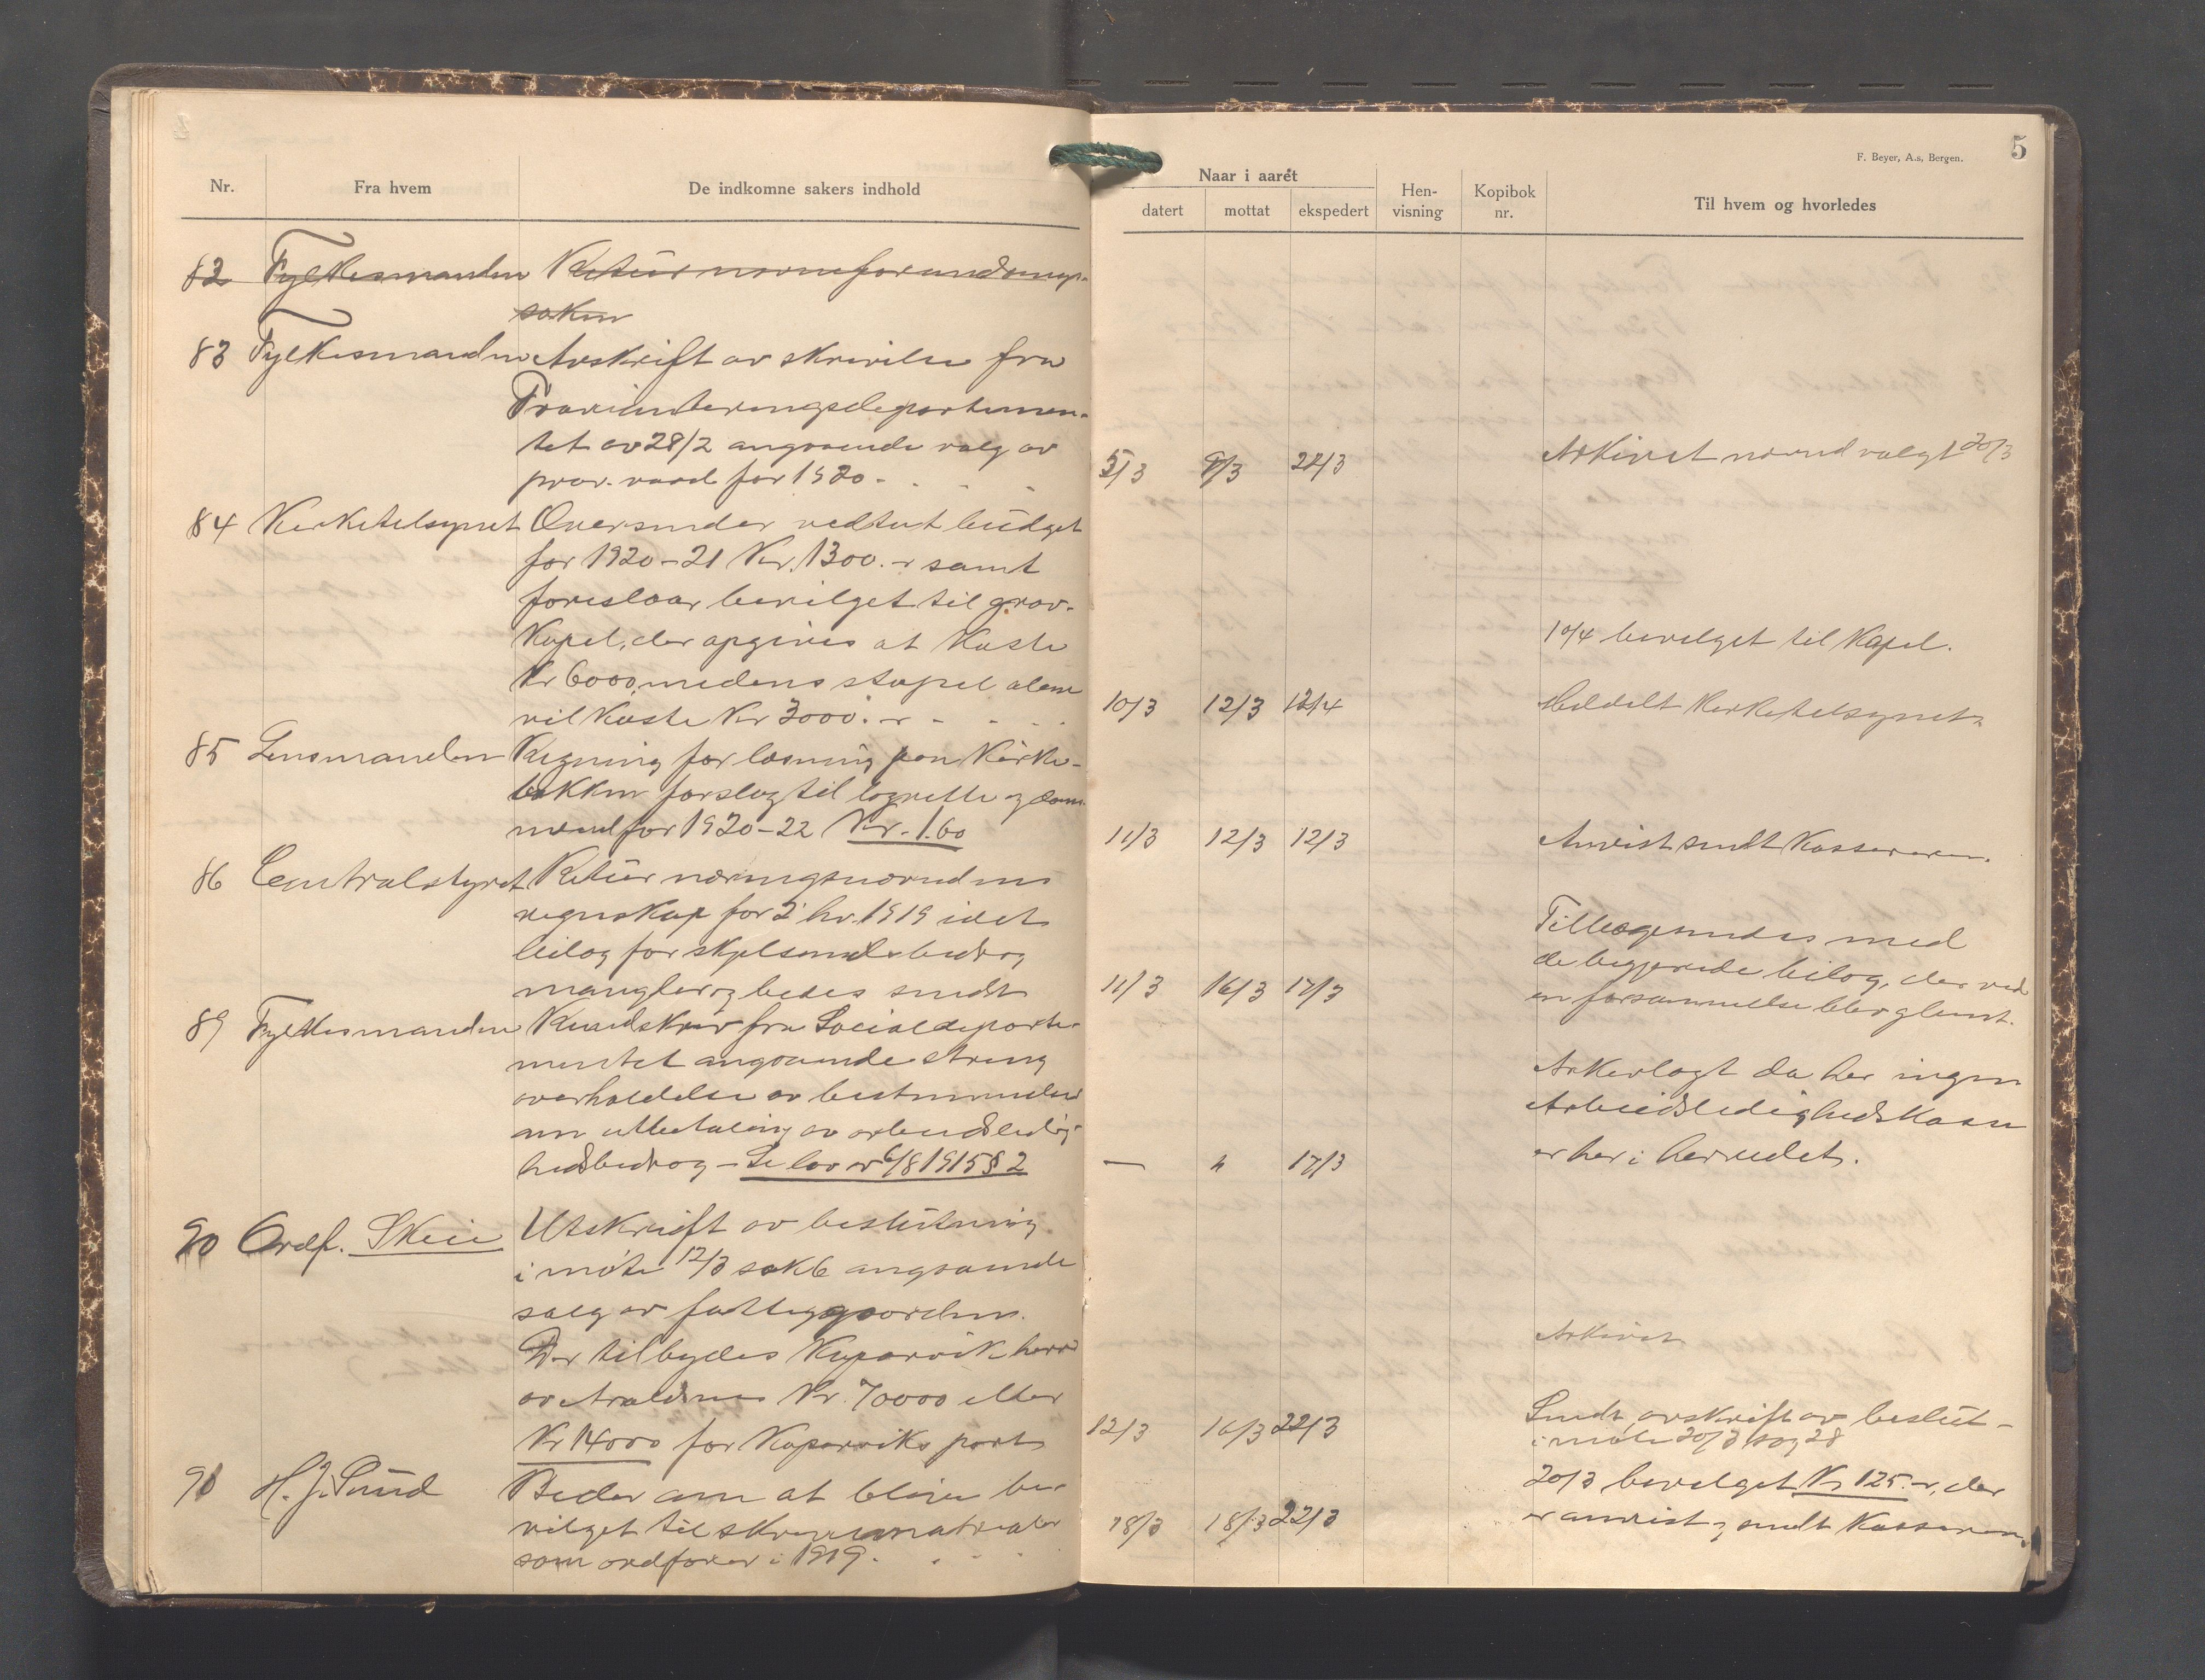 5
F. Beyer, A.s, Bergen.
Nr.
Fra hvem
De indkomne sakers indhold
Naar i aaret
datert
mottat
ekspedert
Hen-
visning
Kopibok
nr.
Til hvem og hvorledes
82 Fylkesmanden Retur
saken
83 Fylkesmanden Avskrift av skrivelse fra
Provianteringsdepartemen-
tet av 28/2 angaaende valg av
prov. raad for 1920 -
5/3 8/3 22/3 Arkivet nevnd valgt 20/3
84 Kirketilsynet Oversender vedtat budget
for 1920-21 Kr. 1300.- samt
foreslaar bevilget til grav-
kapel, der opgives at koste
Kr 6000, medens stapel alene
vil koste Kr 3000.-
10/4 bevilget til Kapel.
10/3 12/3 12/4 Meddelt Kirketilsynet.
85 Lensmanden Regning for læsning paa Kirke-
bakken forslag til lagrette og doms
mænd for 1920-22 Kr. 1.60
11/3 12/3 12/3 Anvist sendt Kassereren.
86 Centralstyret Retur næringsnevndens
regnskap for 2 hv. 1919 idet
bilag for skyldsendte bidrag
mangler og bedes sendt
11/3 16/3 17/3 Tilbagesendes med
de begjærede bilag, der ved
en forsømmelse blev glemt.
89 Fylkesmanden Rundskriv fra Socialdeparte-
mentet angaaende streng
overholdelse av bestemmelsen
om utbetaling av arbeidsledig-
hedsbidrag - Se lov av 6/8 1915 § 2
— " 17/3 Arkivlagt da her ingen
Arbeidsledighedskasse
er her i herredet.
90 Ordf. Skeie Utskrift av beslutning
i møte 12/3 sak 6 angaaende
salg av fattiggaarden.
Der tilbydes Kopervik herred
av Avaldsnes Kr. 70000 eller
Kr 14000 for Koperviks part
Arkivet
12/3 16/3 22/3 Sendt avskrift av beslut-
i møte 20/3 sag 28
91 H. J. Sund Beder om at blive be-
vilget til skrivematerialer
som ordfører i 1919.
18/3 18/3 22/3 20/3 bevilget Kr 125.-, der
er anvist og sendt Kassereren.